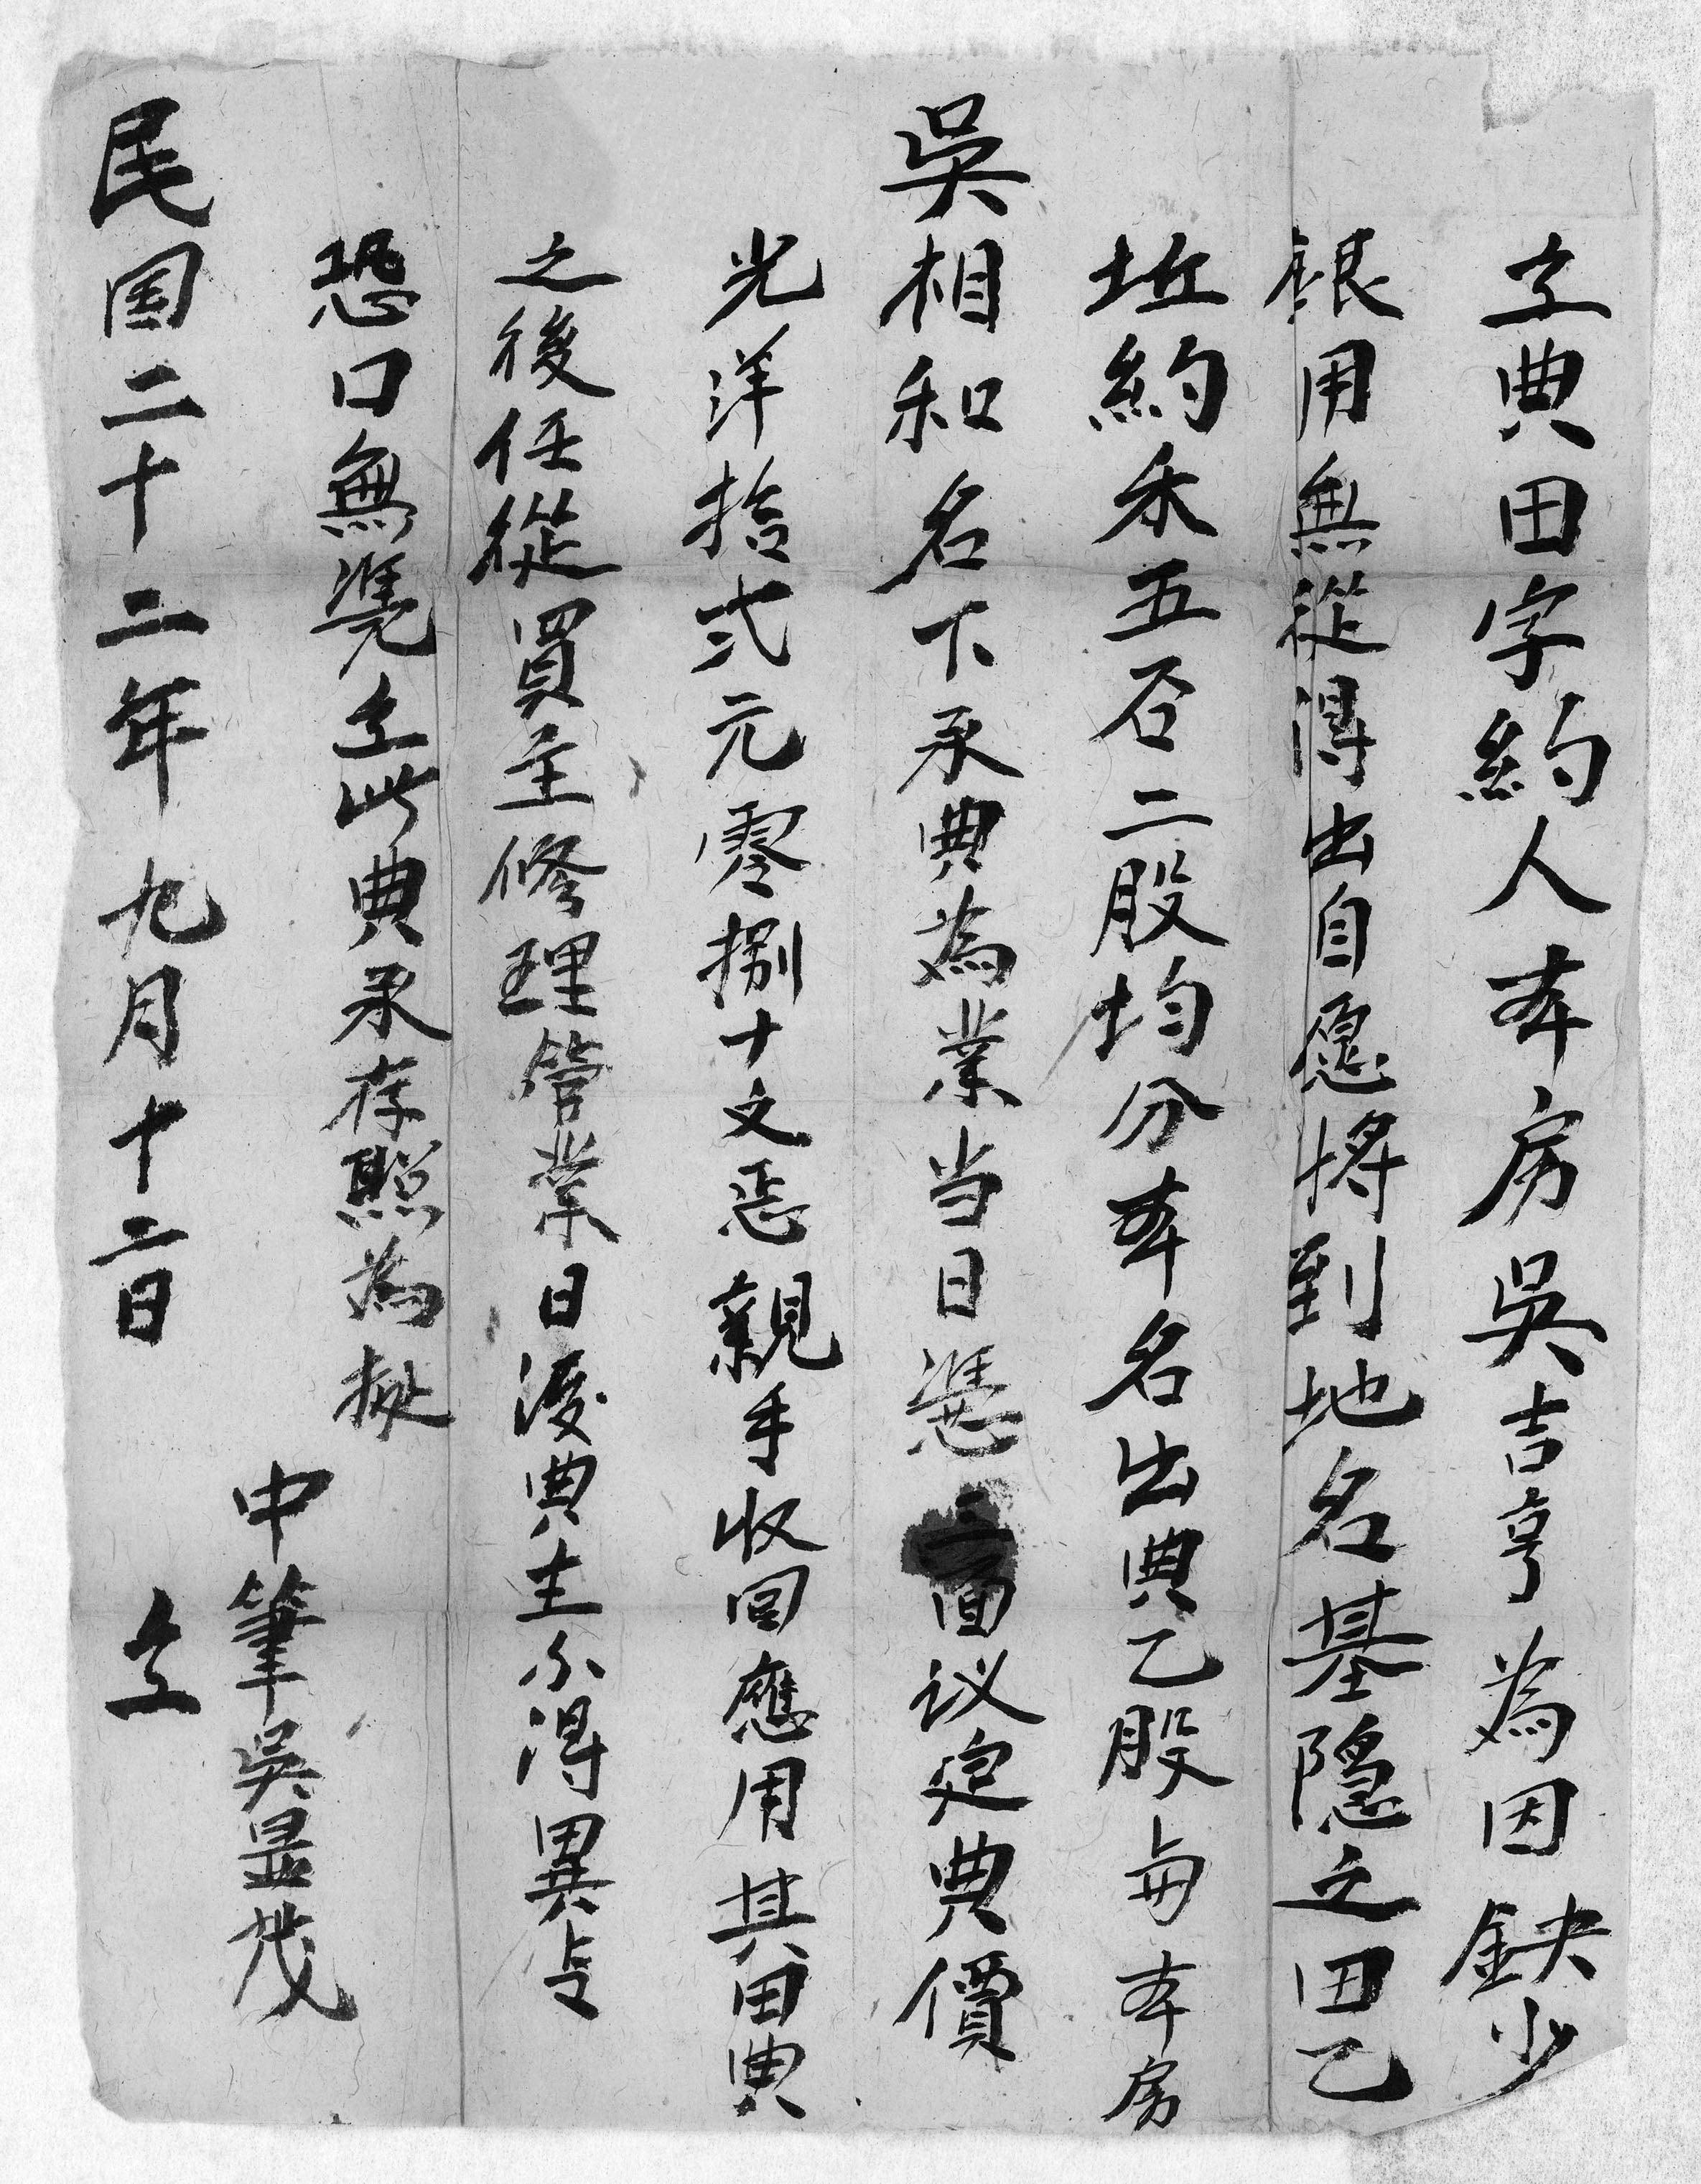 立典田字約人本房吳吉亨為因缺少
銀用無從得出自愿將到地名基隱之田乙
坵約禾五否二股均分本名出典乙股与本房
吳相和名下承典為業当日憑二面议定典價
光洋拾弍元零捌十文悉親手收回應用其田典
之後任從買主修理管業日後典主不得異言
恐口無憑立此典承存照為據
中筆吳昱茂
民国二十二年九月十二日 立